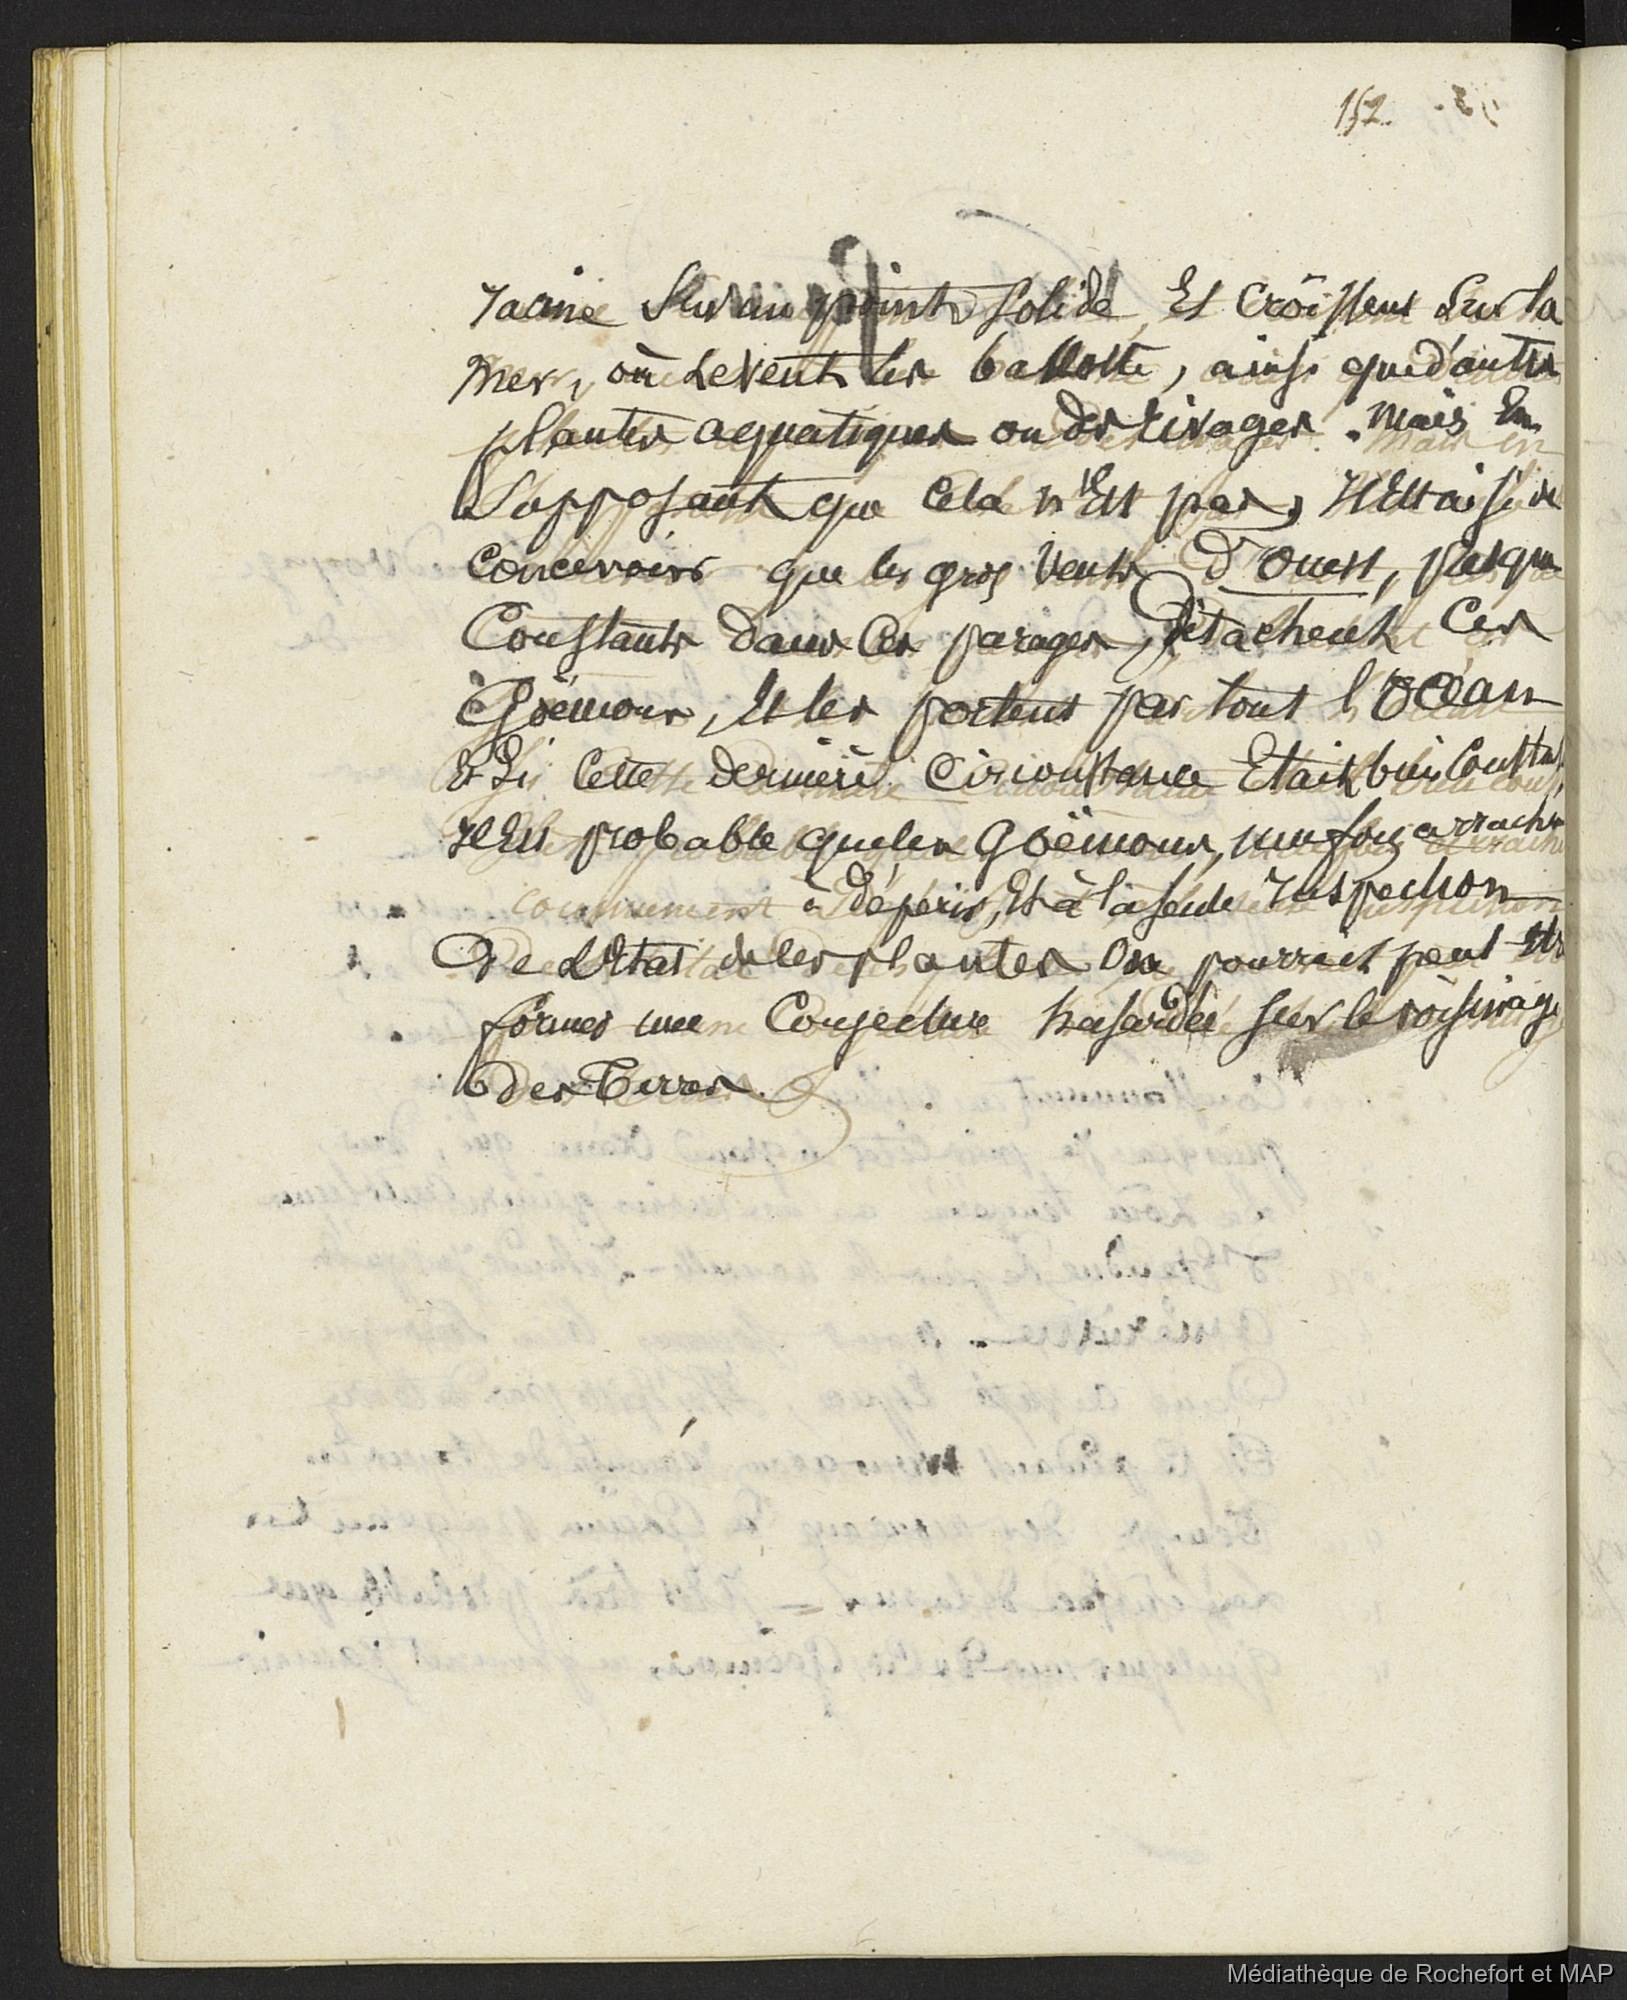 152.
racine sur un point solide, Et croissent sur la
mer, où levent les ballotte, ainsi que d'autres
plantes aquatiques ou des rivages. Mais En
supposant que cela n'Est pas, Il Est aisé de
concevoir que les gros vents d'ouest, presque
Constants dans ces parages, détachent Ces
Goëmons, Et les portent par tout l'océan
Et si Cette derniere Circonstance Etait bien Constat,
Il Est probable que les Goëmons, une fois arrachés
commencent à dépérir, Et à la seule Inspection
De L'Etat de ces plantes On pourrait peut Etr
former une Conjecture hasardée sur le voisinage
des Terres.
Médiathèque de Rochefort et MAP